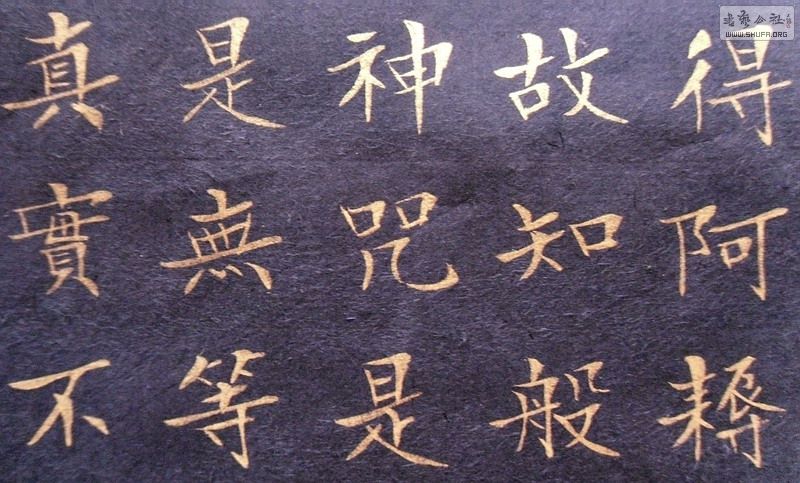 得阿耨
故知般
神咒是
是無等
真實不
書藝公社
WWW.SHUFA.ORG